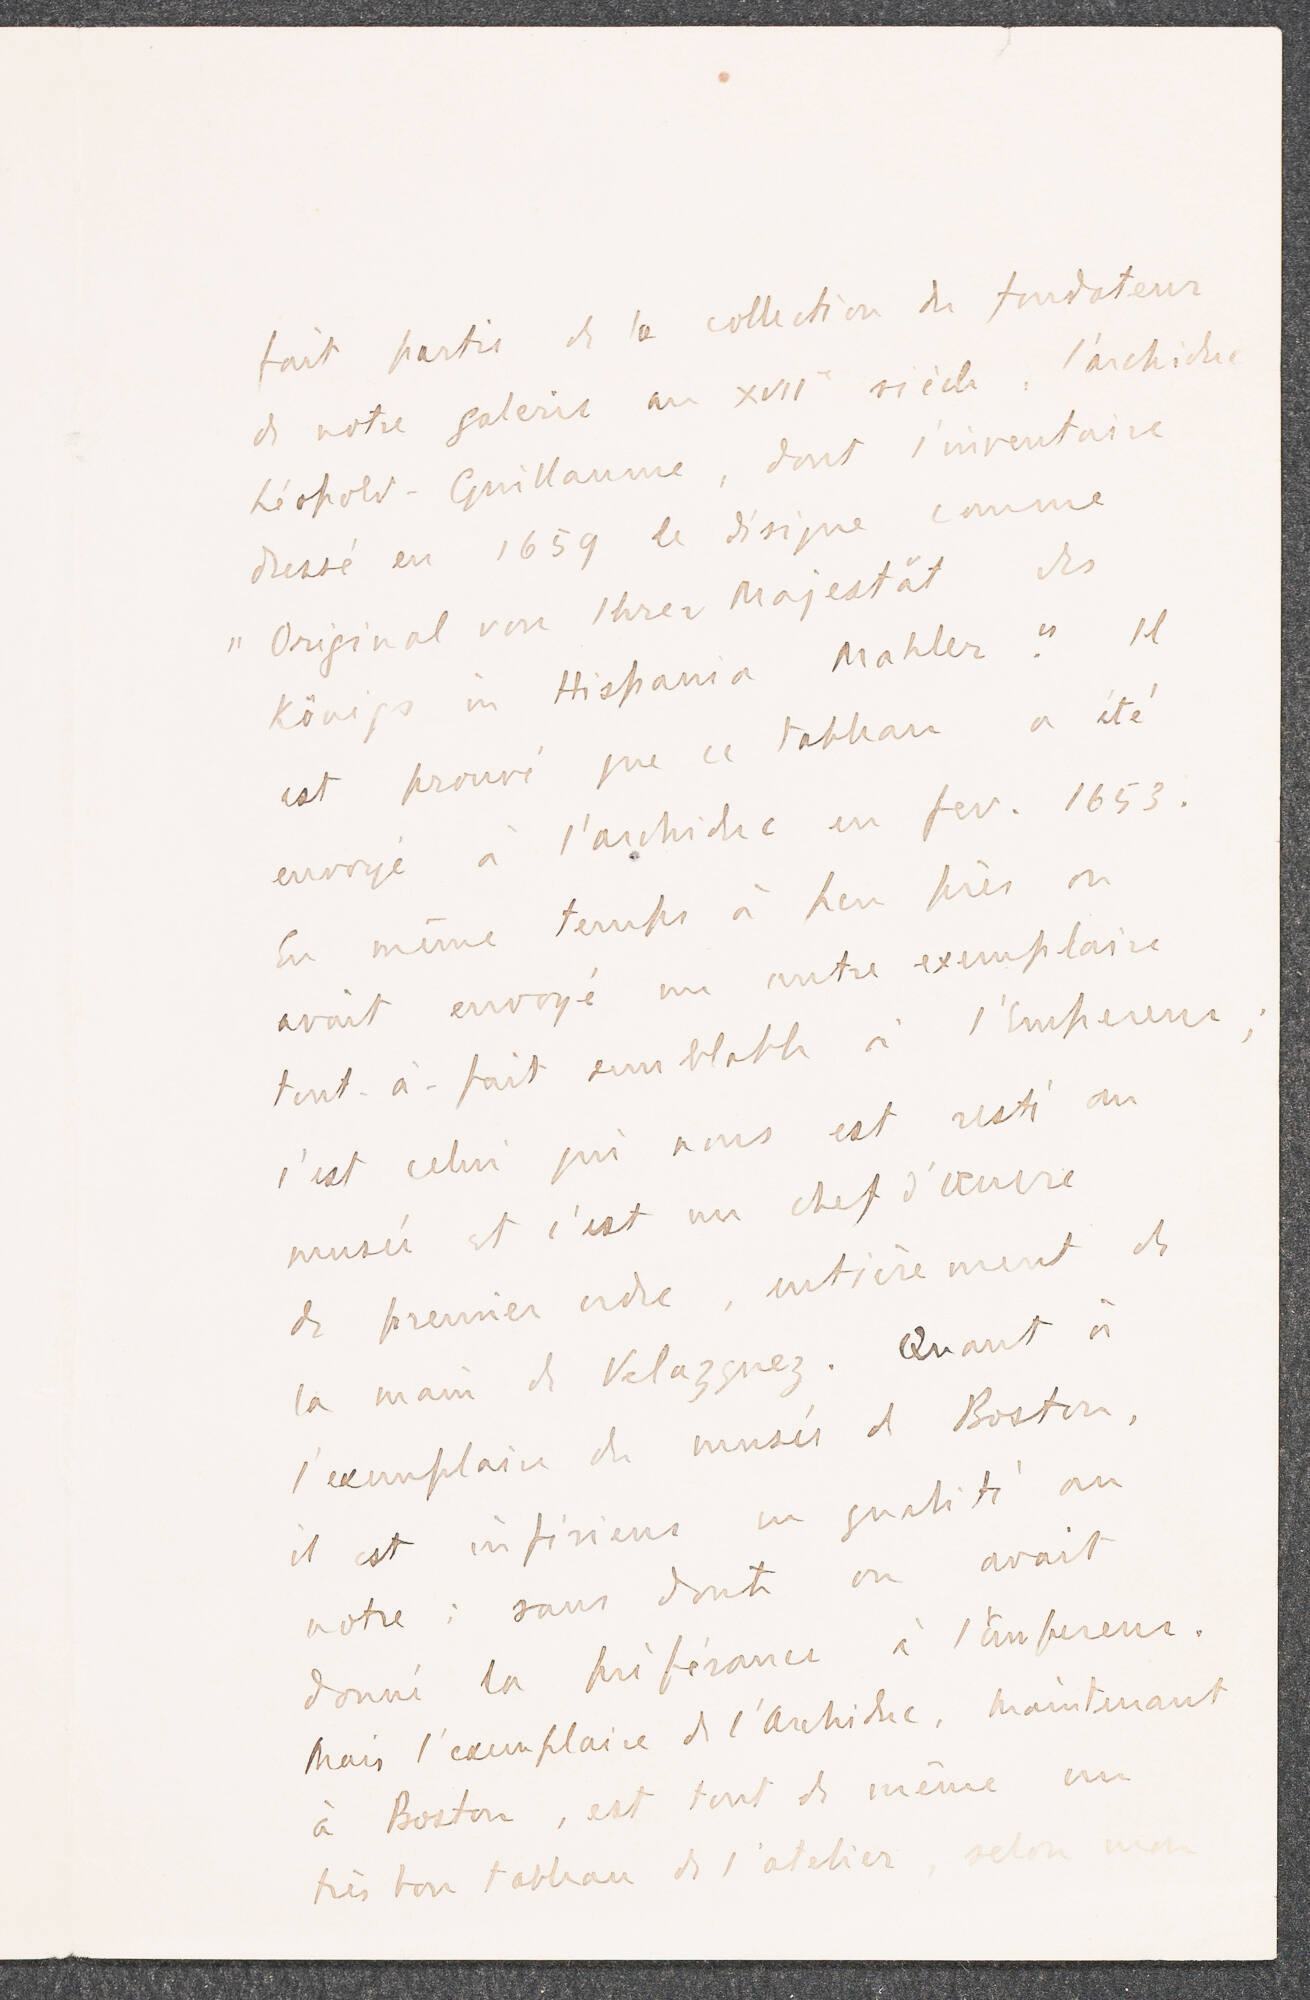 fait partie de la collection du fondateur
de notre galerie au XVIIe siècle, l'archiduc
Léopold-Guillaume, dont l'inventaire
dressé en 1659 le désigne comme
"Original von Ihrer Majestät des
Königs in Hispania Mahler". Il
est prouvé que ce tableau a été
envoyé à l'archiduc en fev. 1653.
En même temps à peu près on
avait envoyé un autre exemplaire
tout-à-fait semblable à l'Empereur;
c'est celui qui nous est resté au
musée et c'est un chef d'œuvre
de premier ordre, entièrement de
la main de Velazquez. Quant à
l'exemplaire du musée d Boston,
il est inférieur en qualité au
notre: sans doute on avait
donné la préférance à l'Empereur.
Mais l'exemplaire de l'Archiduc, maintenant
à Boston, est tout de même un
très bon tableau de l'atelier, selon mon